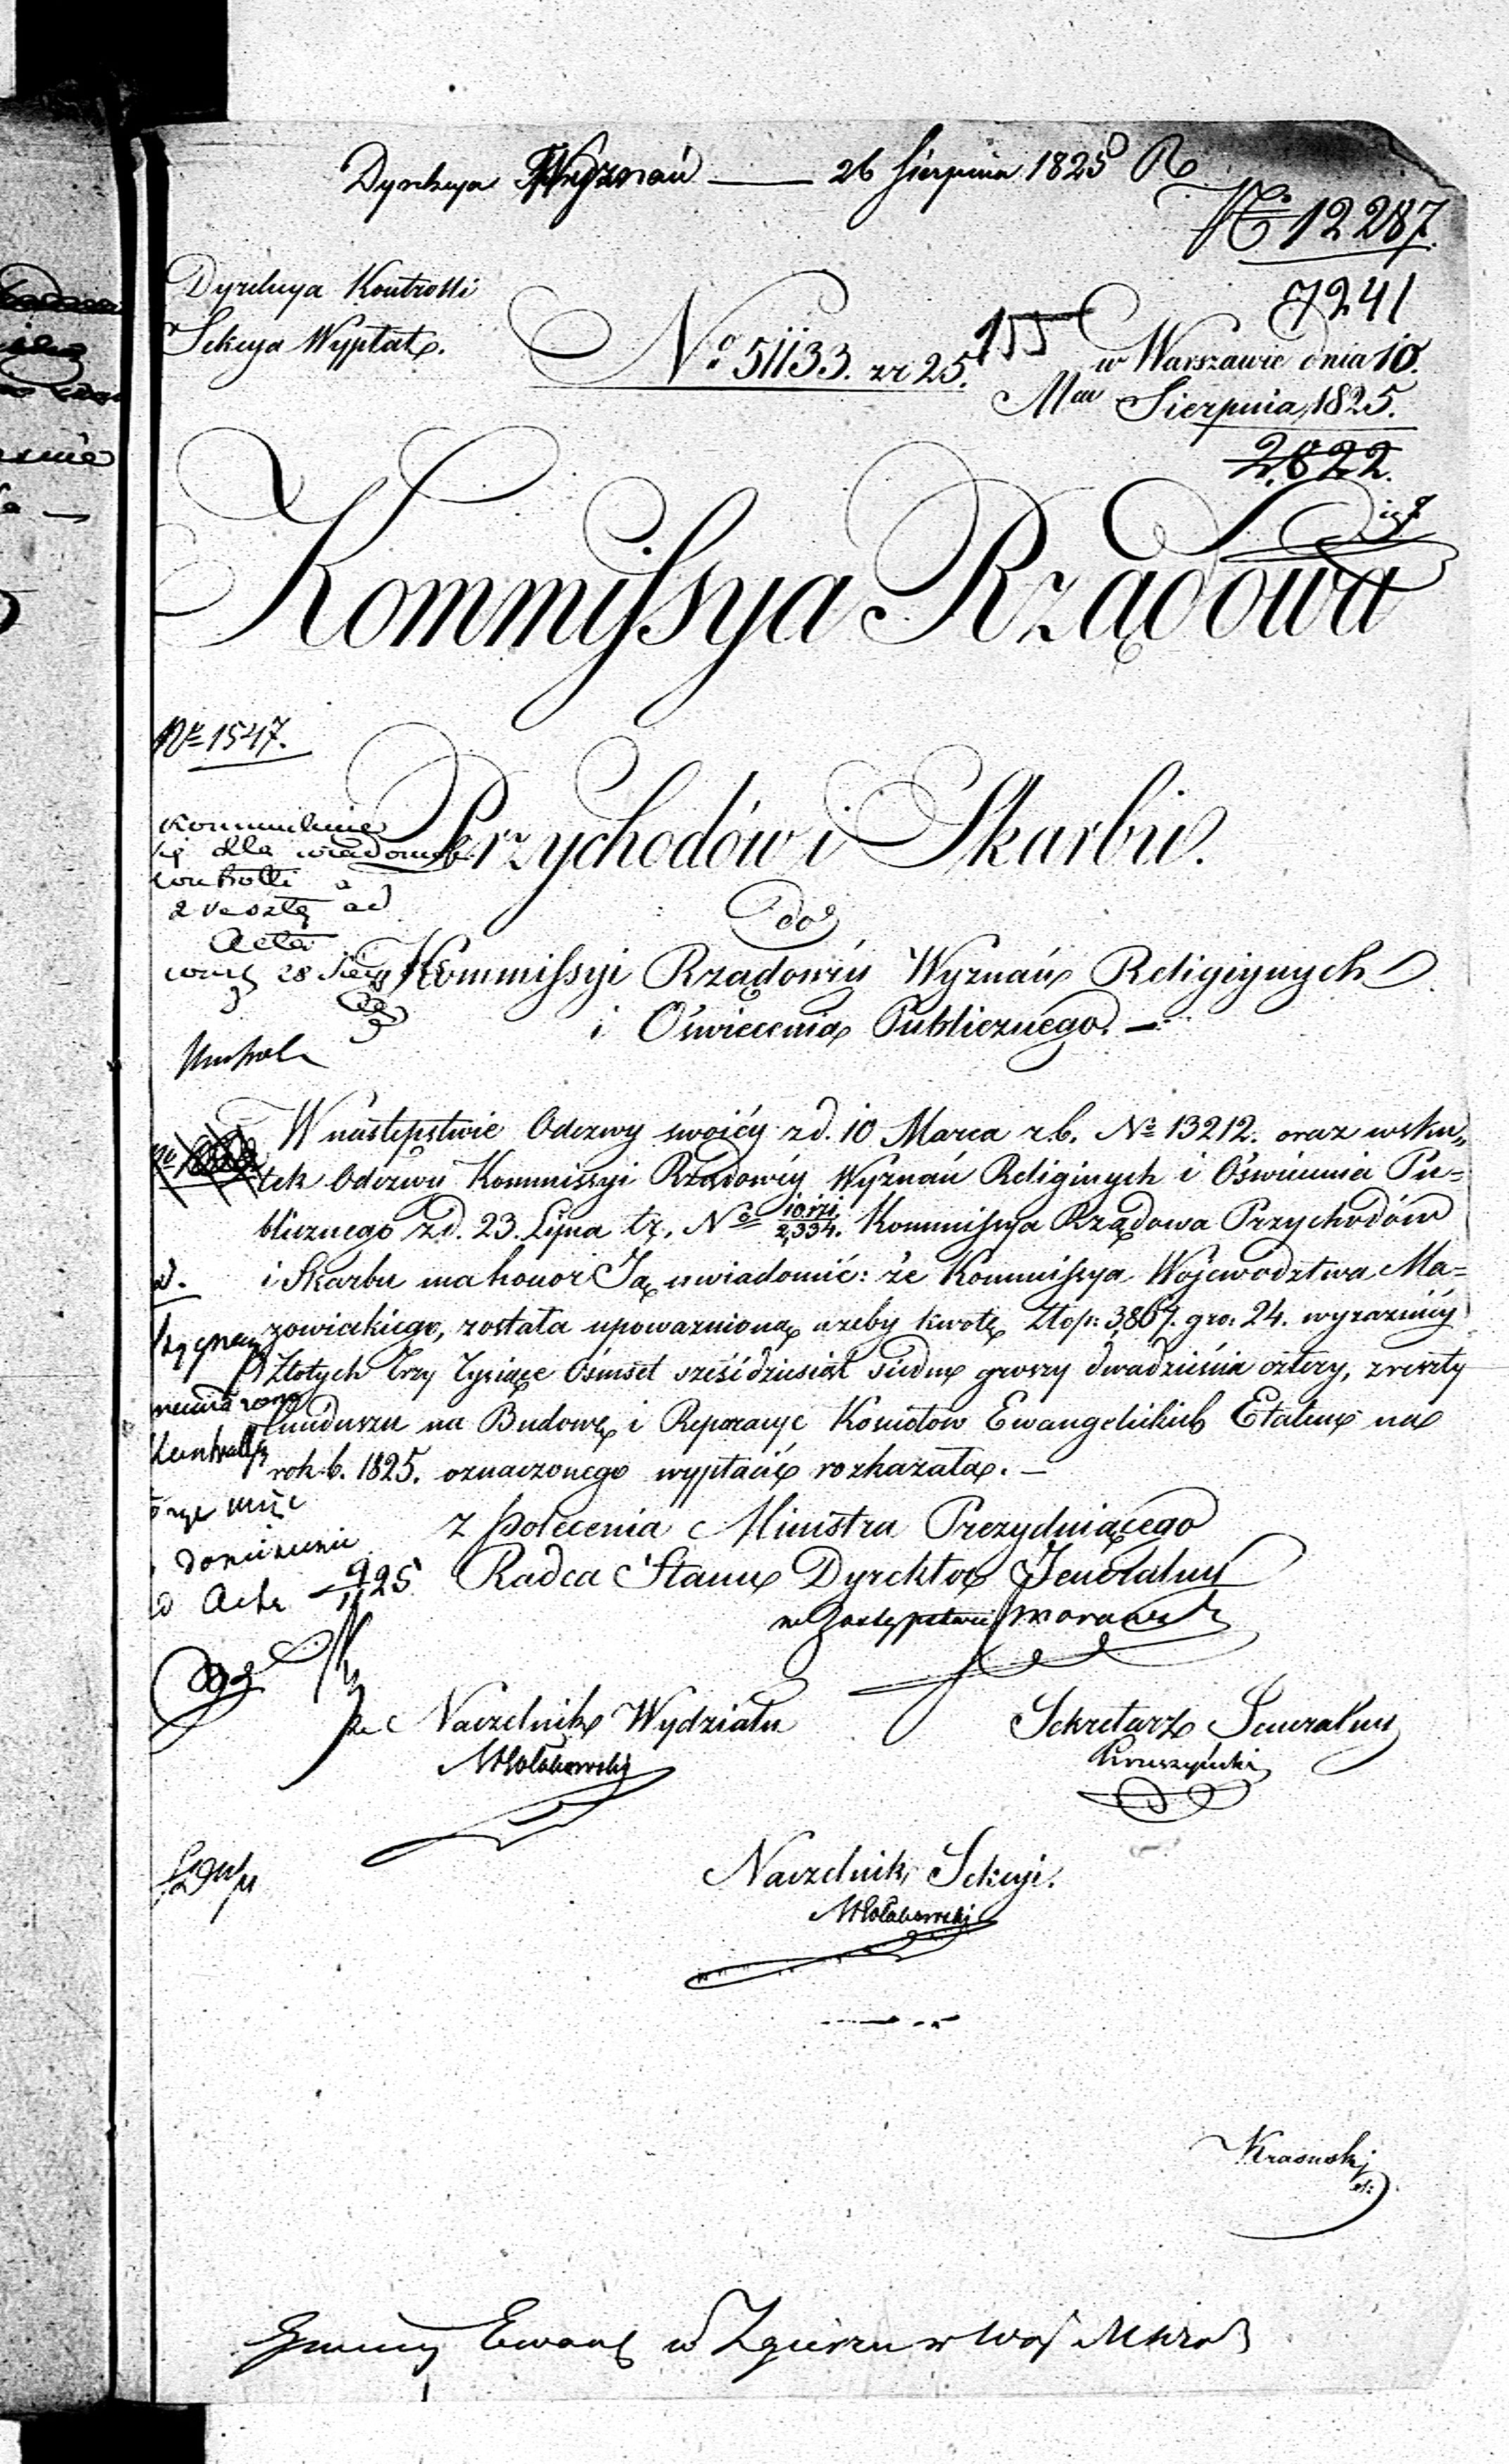 Dyrekcya Wyznań — 26 Sierpnia 1825 R
No 12287.
7241
Dyrekcya Kontrolli
Sekcya Wypłat.
No 51133. ex 25.
155
w Warszawie dnia 10.
Sierpnia 1825.
2822.
Kommissya Rządowa
No 1547.
Przychodów i Skarbu.
dla wiadomości
kontrolli
a reszta ad
Acta
28 Sierp
do
Kommissyi Rządowéy Wyznań Religiynych
i Oświecenia Publicznego. —
W następstwie Odezwy swoiéy z d. 10 Marca r. b. No 13212. oraz wsku„
tek Odezwy Kommissyi Rządowéy Wyznań Religinych i Oświecenia Pu=
blicznego z d. 23. Lipca t. r. No 2,334. Kommissya Rządowa Przychodów
i Skarbu ma honor Ją uwiadomić: że Kommissya Województwa Ma=
zowieckiego, została upoważnioną ażeby kwotę Złop: 3,867. gro: 24. wyraźniéy
Złotych Trzy Tysiące Ośmset sześćdziesiąt siedm groszy dwadzieścia cztery, z reszty
funduszu na Budowę i Reparacye Kościołów Ewangelickich Etatem na
rok b. 1825. oznaczonego wypłacić rozkazała. —
z polecenia Ministra Prezyduiącego
Radca Stanu Dyrektor Jeneralny
w Zastępstwie Morawski
Acta
Naczelnik Wydziału
Sekretarz Jeneralny
Kruszyński
Naczelnik Sekcyi.
Krasuski
Gminy Ewang w Zgierzu w Woj Mazow